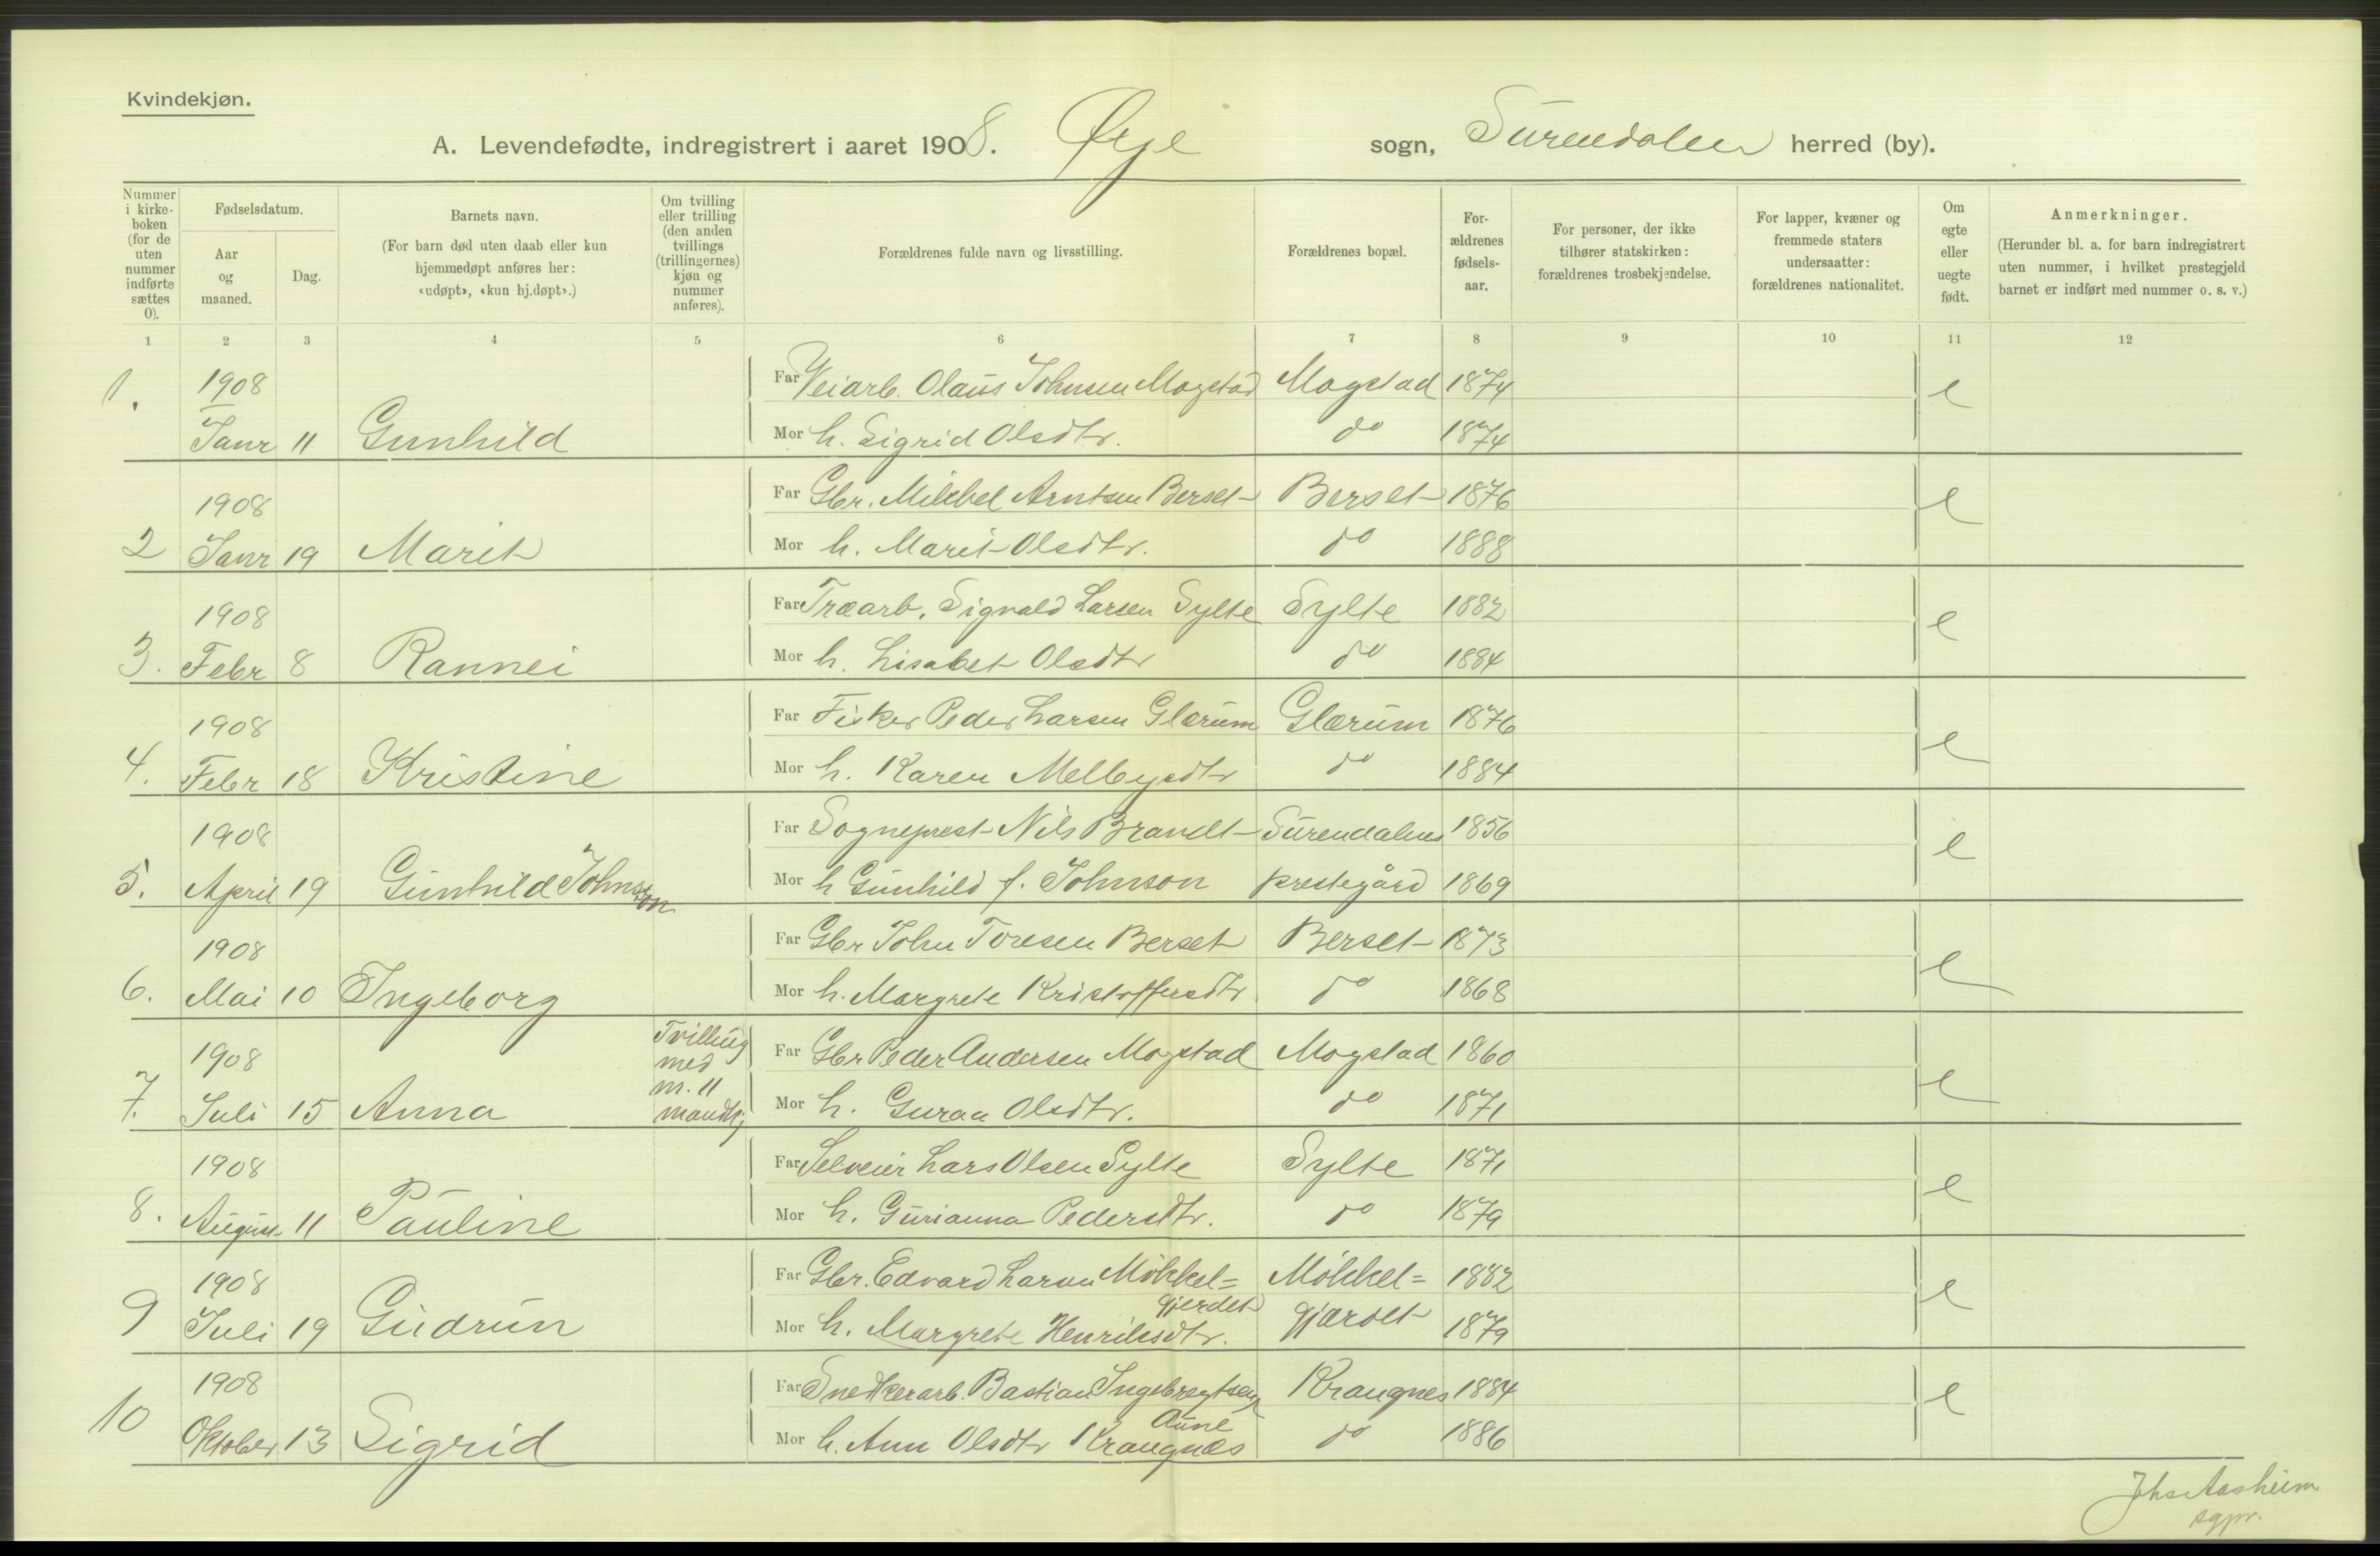 Kvindekjøn.
A. Levendefødte, indregistrert i aaret 1908. Øye sogn, Surendalen herred (by).
Nummer i kirke-boken (for de uten nummer indførte sættes 0).
Fødselsdatum.
Aar og maaned.
Dag.
Barnets navn.
(For barn død uten daab eller kun hjemmedøpt anføres her: «udøpt», «kun hj.døpt».)
Om tvilling eller trilling (den anden tvillings (trillingernes) kjøn og nummer anføres).
Forældrenes fulde navn og livsstilling.
Forældrenes bopæl.
For-ældrenes fødsels-aar.
For personer, der ikke tilhører statskirken: forældrenes trosbekjendelse.
For lapper, kvæner og fremmede staters undersaatter: forældrenes nationalitet.
Om egte eller uegte født.
Anmerkninger.
(Herunder bl. a. for barn indregistrert uten nummer, i hvilket prestegjeld barnet er indført med nummer o. s. v.)
1 2 3 4 5 6 7 8 9 10 11 12
1908 Far Veiarb. Olaus Johnsen Mogstad Mogstad 1874 e
1. Janr 11 Gunhild Mor h. Sigrid Olsdtr. do 1874
1908 Far Gbr. Mikkel Arntsen Berset Berset 1876 e
2 Janr 19 Marit Mor h. Marit Olsdtr. do 1888
1908 Far Træarb. Sigvald Larsen Sylte Sylte 1882 e
3. Febr 8 Rannei Mor h. Lisabet Olsdtr do 1884
1908 Far Fisker Peder Larsen Glærum Glærum 1876 e
4. Febr 18 Kristine Mor h. Karen Melbysdtr do 1884
1908 Far Sogneprest Nils Brandt Surendalens 1856 e
5. April 19 Gunhild Johnson Mor h Gunhild f. Johnson prestegård 1869
1908 Far Gbr John Toresen Berset Berset 1873 e
6. Mai 10 Ingeborg Mor h. Margrete Kristoffersdtr do 1868
1908 Tvilling med m. 11 mandkj Far Gbr Peder Andersen Mogstad Mogstad 1860 e
7. Juli 15 Anna Mor h. Guraa Olsdtr. do 1871
1908 Far Selveier Lars Olsen Sylte Sylte 1871 e
8. August 11 Pauline Mor h. Gurianna Pedersdtr. do 1879
1908 Far Gbr. Edvard Larsen Mökkel= Mökkel= 1882 e
gjerdet
9 Juli 19 Gudrun Mor h. Margrete Henriksdtr. gjærdet 1879
1908 Far Snedkerarb. Bastian Ingebregtsen Krangnes 1884 e
Aune
10 Oktober 13 Sigrid Mor h. Ann Olsdtr Krangnes do 1886
Johs Aasheim
sgpr.